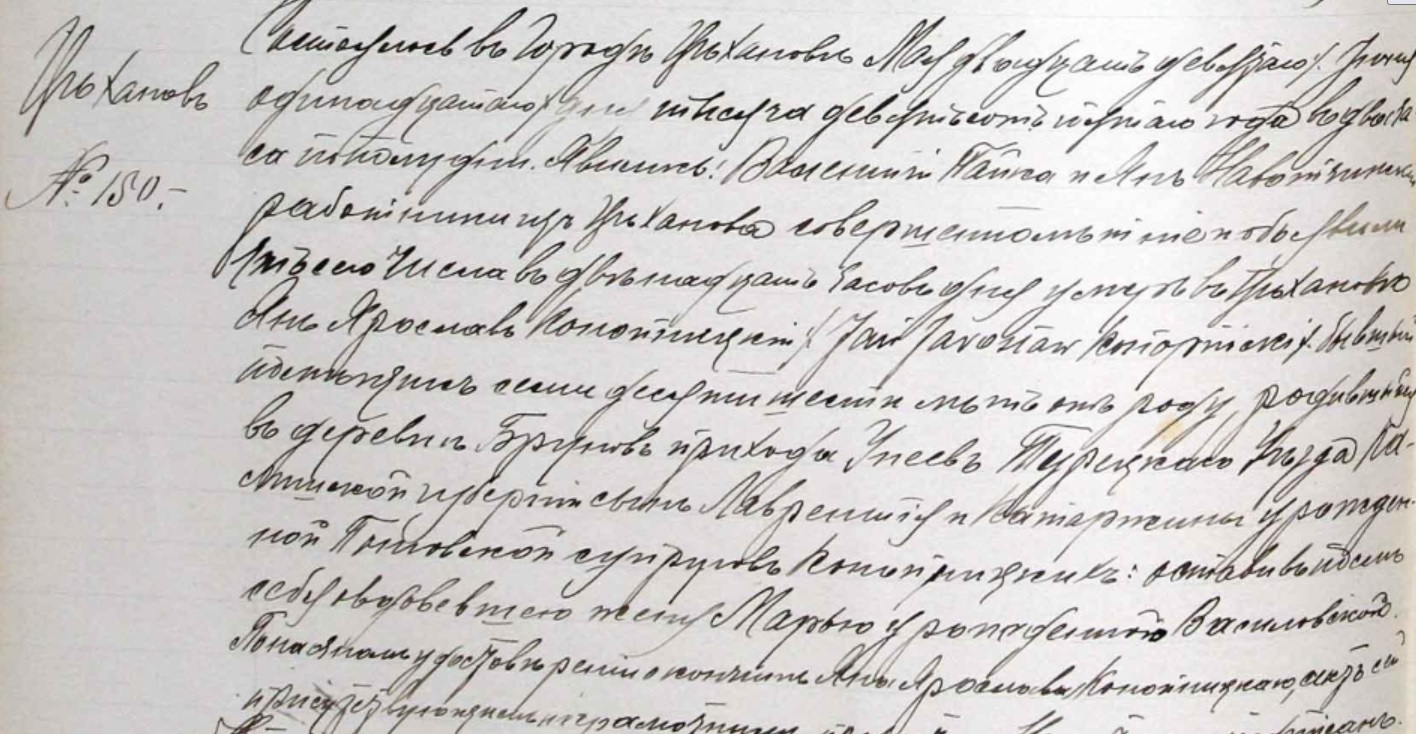 Цѣхановъ
№ 150.-
Состоялось въ городѣ Цѣхановѣ Мая двадцать девятаго /: Іюня
одинадцатаго /: дня тысяча девятьсотъ пятаго года въ два ча
са пополудни. Явились: Валентій Пайка и Янъ
работники изъ Цѣханова совершеннолѣтніе и объявили
что сего числа въ двѣнадцать часовъ дня умеръ въ Цѣхановѣ
Янъ Ярославъ Конопницкій /: Jan Jarosław Konopnicki /: бывшій
помѣщикъ семидесяти шести лѣтъ отъ роду, родившійся
въ деревнѣ прихода Унеевъ Турецкаго Уѣзда Ка-
лишской губерніи сынъ Лаврентія и Катаржины урожден-
ной супруговъ Конопницкихъ: оставивъ послѣ
себя овдовевшею жену Марью урожденною Василовской.
По настоящемъ удостовѣреніи о кончинѣ Яна Ярослава Конопницкаго, актъ сей
присутствующимъ неграмотнымъ